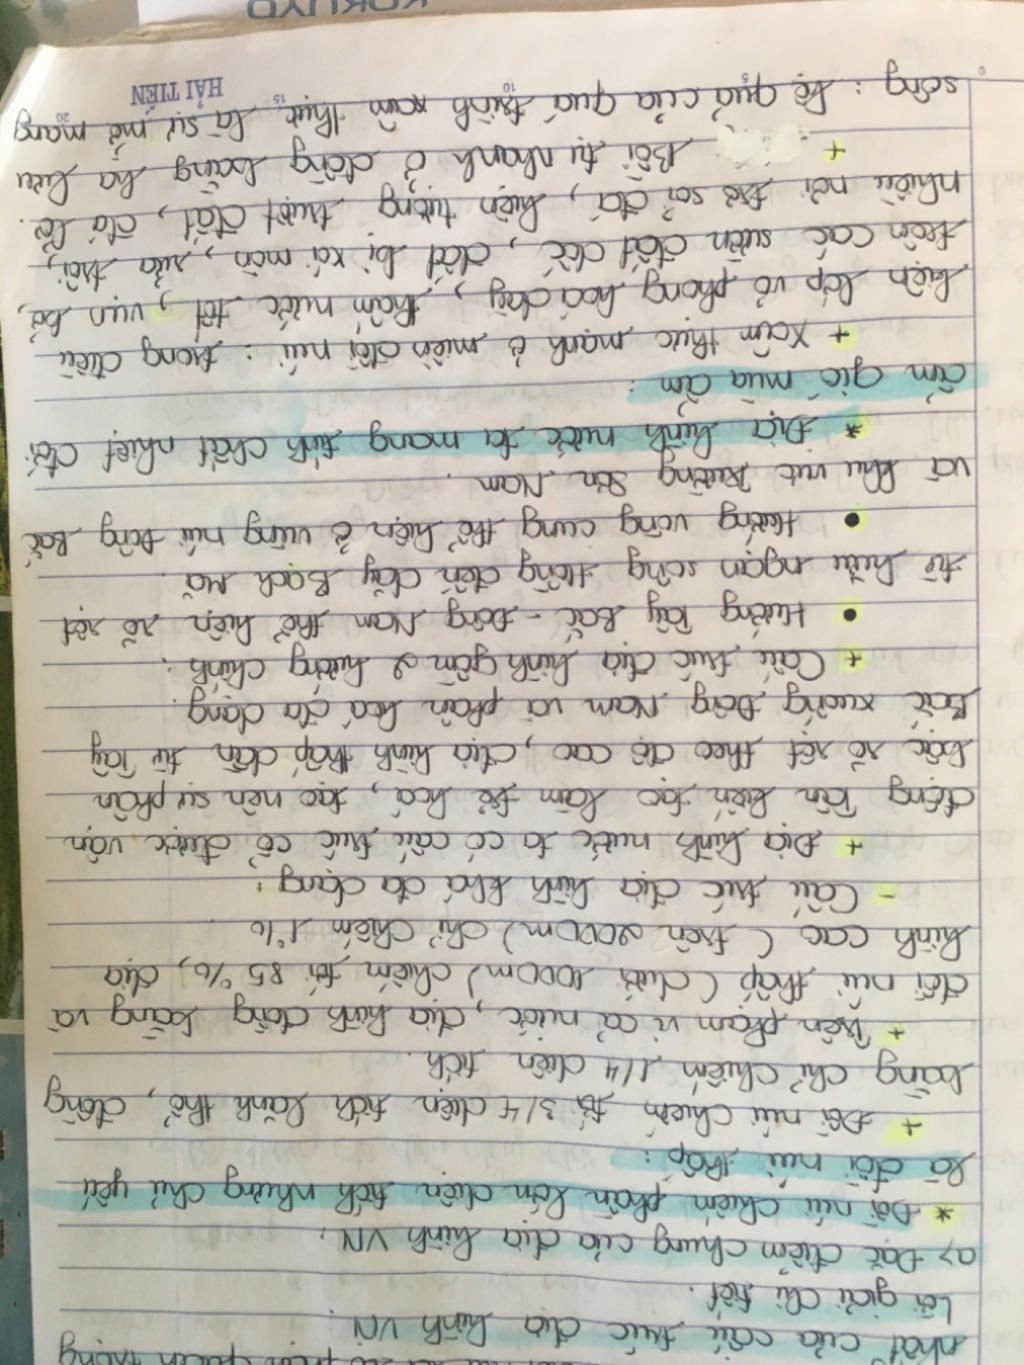 nhất của cấu trúc địa hình VN.
Lời giải chi tiết.
a> Đặc điểm chung của địa hình VN:
* Đồi núi chiếm phần lớn diện tích nhưng chủ yếu
là đồi núi thấp:
+ Đồi núi chiếm tới 3/4 diện tích lãnh thổ, đồng
bằng chỉ chiếm 1/4 diện tích.
+ Trên phạm vi cả nước, địa hình đồng bằng và
đồi núi thấp (dưới 1000m) chiếm tới 85%, địa
hình cao (trên 2000m) chỉ chiếm 1%
- Cấu trúc địa hình khá đa dạng:
+ Địa hình nước ta có cấu trúc cổ được vận
động Tân kiến tạo làm trẻ hoá, tạo nên sự phân
bậc rõ rệt theo độ cao, địa hình thấp dần từ Tây
Bắc xuống Đông Nam và phân hoá đa dạng.
+ Cấu trúc địa hình gồm 2 hướng chính:
• Hướng Tây Bắc - Đông Nam thể hiện rõ rệt
từ hữu ngạn sông Hồng đến dãy Bạch Mã.
• Hướng vòng cung thể hiện ở vùng núi Đông Bắc
và khu vực Trường Sơn Nam.
* Địa hình nước ta mang tính chất nhiệt đới
ẩm gió mùa ẩm:
+ Xâm thực mạnh ở miền đồi núi: trong điều
kiện lớp vỏ phong hoá dày, thấm nước tốt, vụn bở,
trên các sườn đất dốc, đất bị xói mòn, rửa trôi,
nhiều nơi trơ sỏi đá, hiện tượng trượt đất, đá lở.
+ Bồi tụ nhanh ở đồng bằng hạ lưu
sông: hệ quả của quá trình xâm thực là sự mở mang
HẢI TIẾN
5 10 15 20
KOKUYO